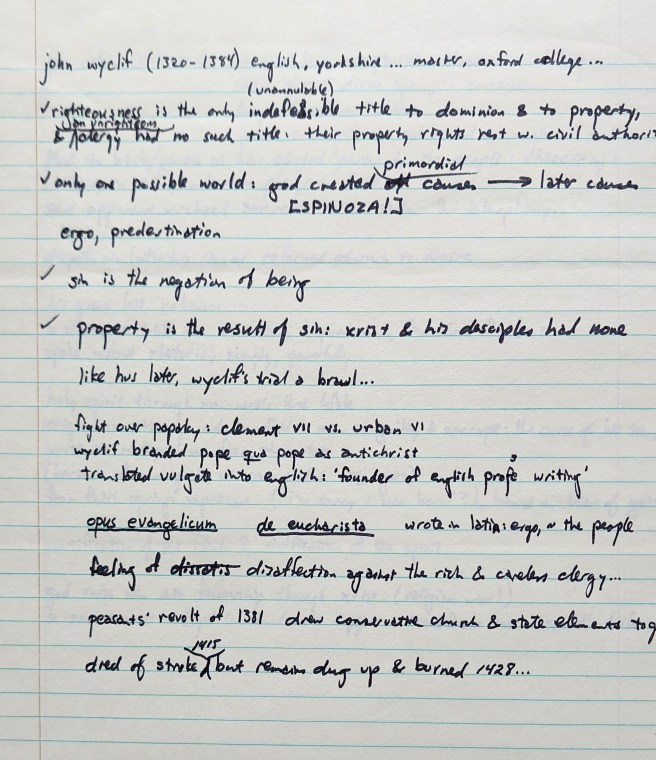 john wyclif (1320-1384) english, yorkshire ... master, oxford college ...
(unannulable)
✓ righteousness is the only indefeasible title to dominion & to property,
an unrighteous
& clergy had no such title: their property rights rest w. civil authori
primordial
✓ only one possible world: god created causes → later causes
[SPINOZA!]
ergo, predestination
✓ sin is the negation of being
✓ property is the result of sin: xrist & his desciples had none
like hus later, wyclif's trial a brawl...
fight over papacy: clement VII vs. urban VI
wyclif branded pope qua pope as antichrist
translated vulgate into english: 'founder of english prose writing'
opus evangelicum de eucharista wrote in latin: ergo, the people
feeling of dissatis disaffection against the rich & careless clergy...
peasants' revolt of 1381 drew conservative church & state elements tog
1415
died of stroke, but remains dug up & burned 1428...